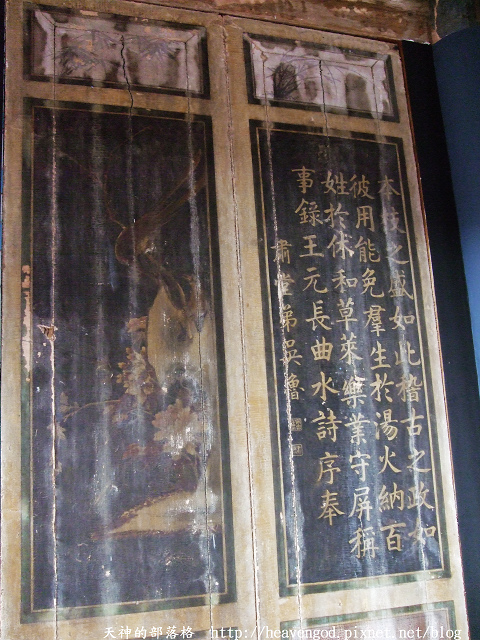 本枝之盛如此稽古之政如
彼用能免羣生於湯火納百
姓於休和草萊樂業守屏稱
事錄王元長曲水詩序奉
肅堂弟吳魯
天神的部落格 http://heavengod.pixnet.net/blog